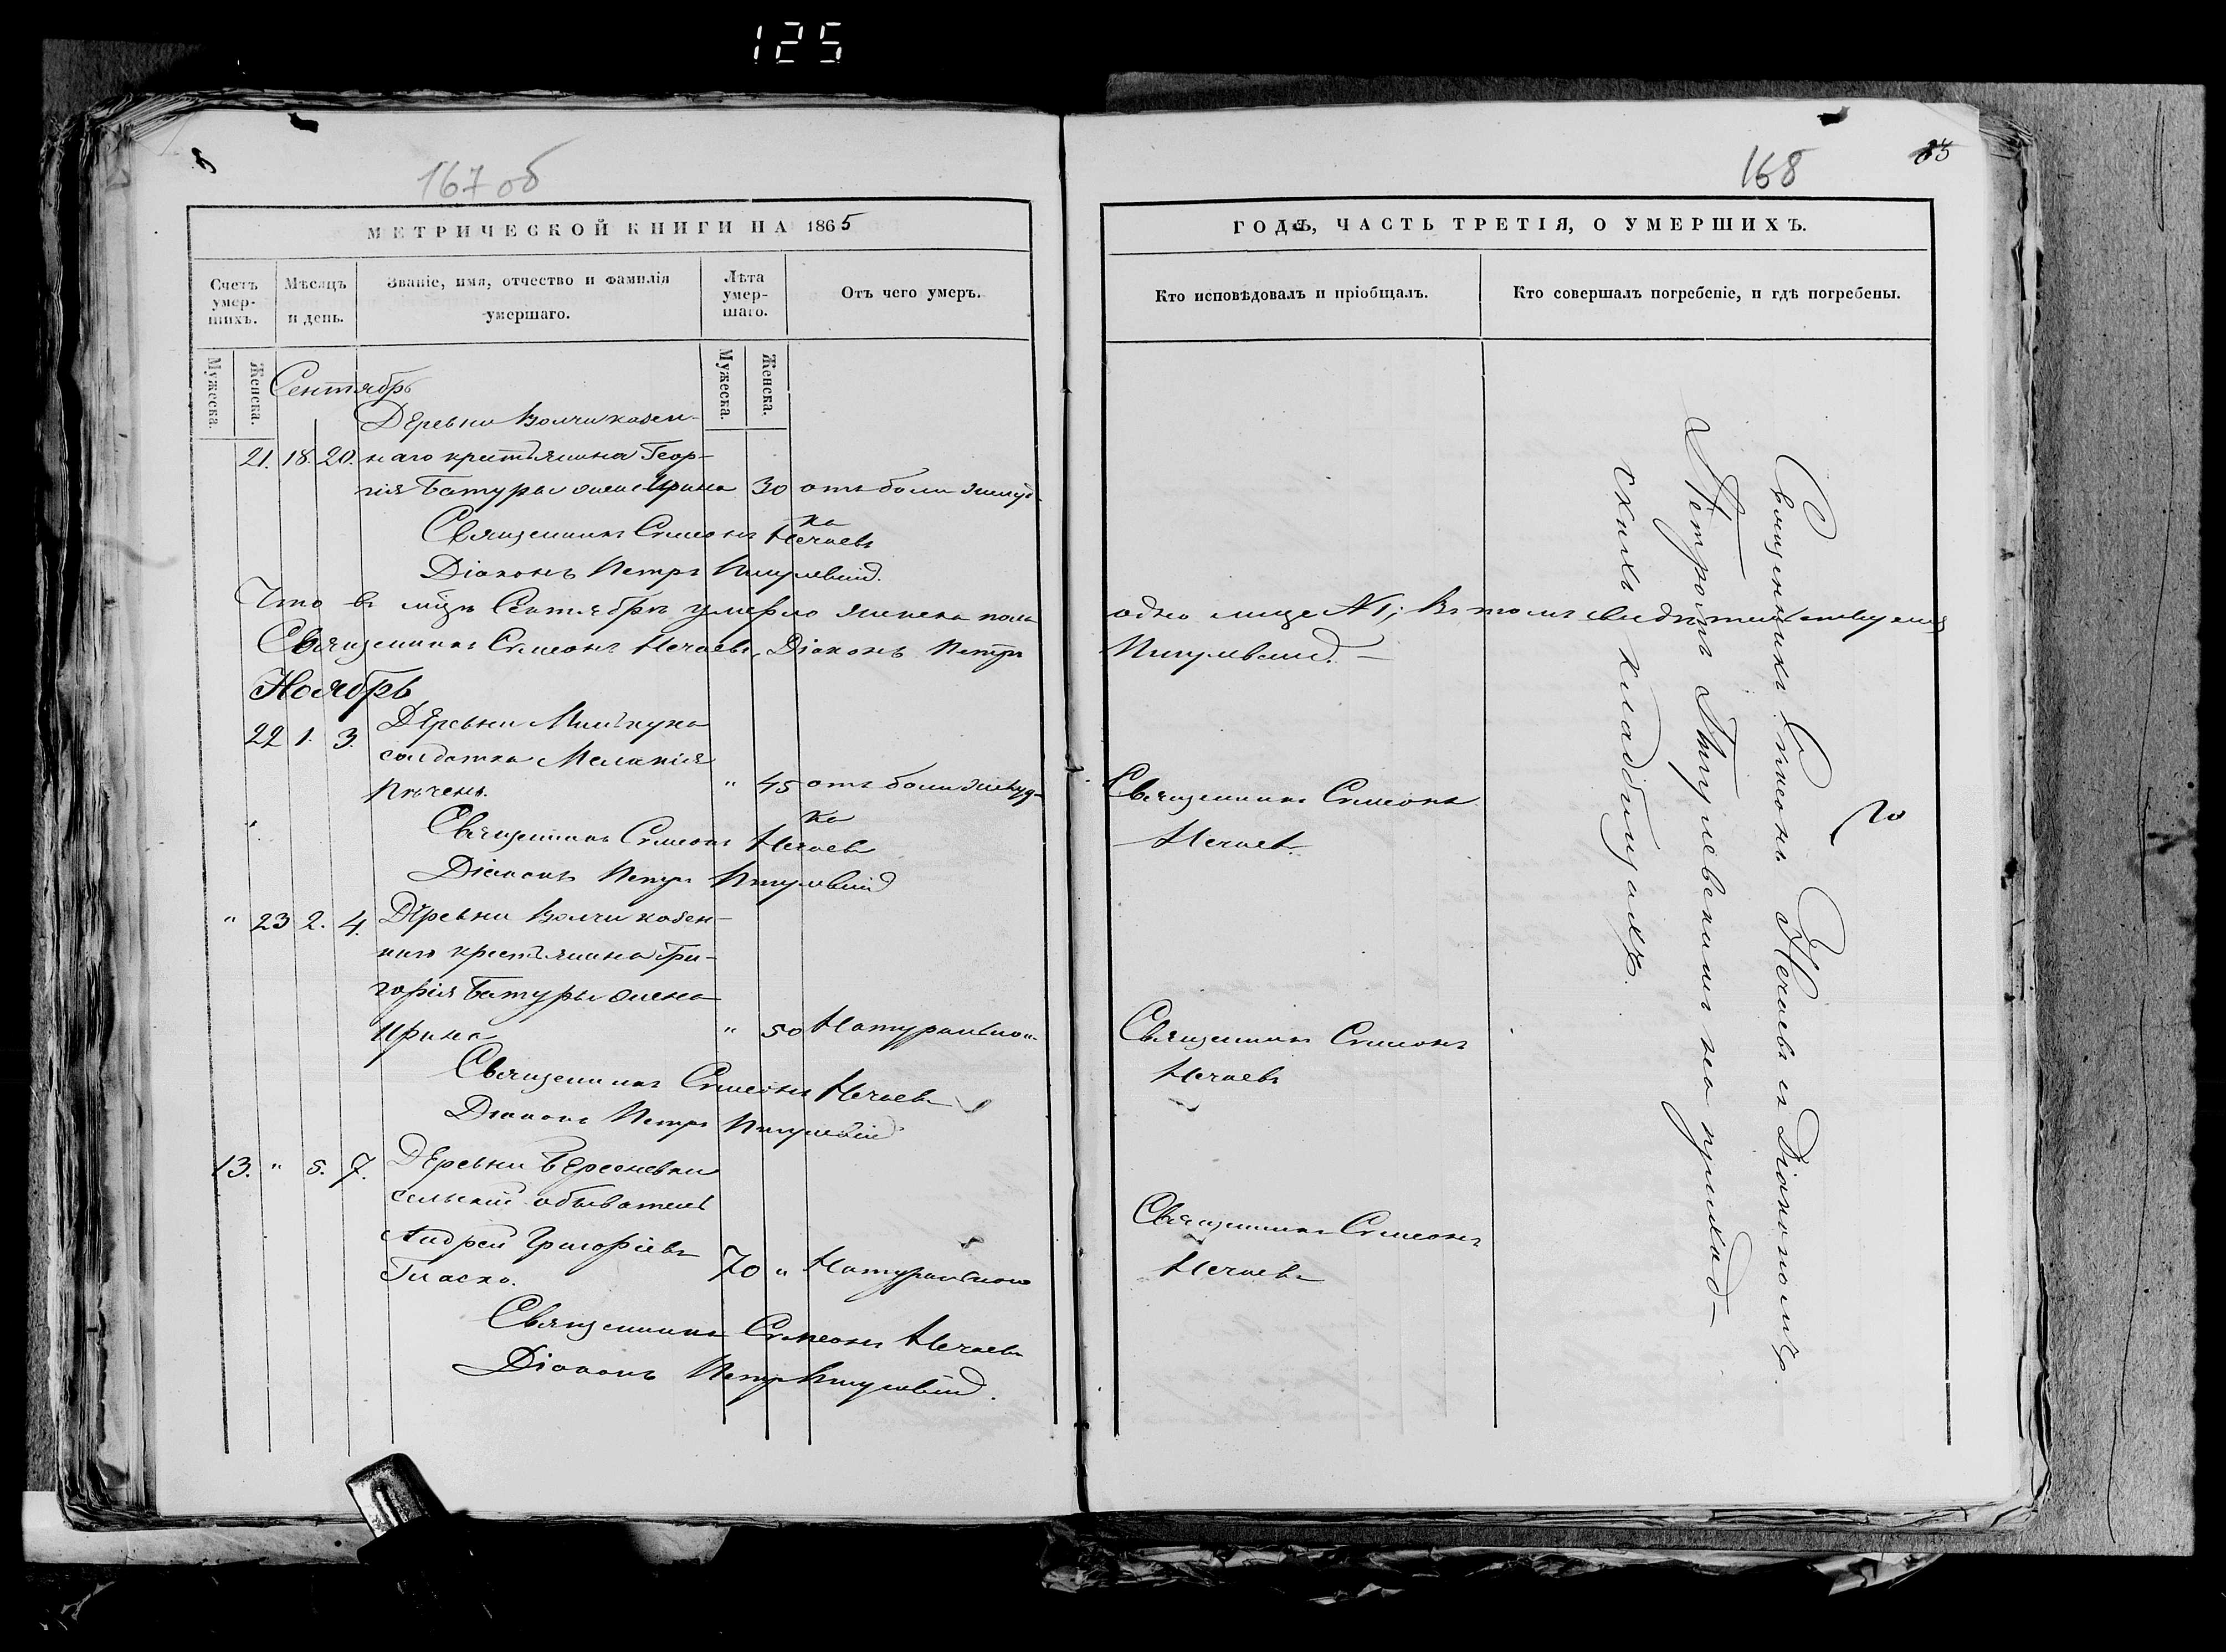 125
167 об
МЕТРИЧЕСКОЙ КНИГИ НА 1865
Счетъ умер-шихъ.
Мѣсяцъ и день.
Званіе, имя, отчество и фамилія умершаго.
Лѣта умер-шаго.
Отъ чего умеръ.
Мужеска.
Женска.
Мужеска.
Женска.
Сентябрь
Деревни Волчи казен-
21. 18. 20. наго крестьянина Геор-
гія Батуры жена Ирина 30 отъ боли желуд-
ка
Священникъ Симеонъ Нечаевъ
Діаконъ Петръ
Что въ м͠цѣ Сентябрѣ умерло женска пола
Священникъ Симеонъ Нечаевъ, Діаконъ Петръ
Ноябрь
22 1. 3. Деревни
солдатка Меланія
" 45 отъ боли желуд-
ка
Священникъ Симеонъ Нечаевъ
Діаконъ Петръ
" 23 2. 4. Деревни Волчи казен-
наго крестьянина Гри-
горія Батуры жена
Ирина " 50 Натурально
Священникъ Симеонъ Нечаевъ
Діаконъ Петръ
13. " 5. 7. Деревни
сельскій обыватель
Андрей Григоріевъ
70 " Натурально
Священникъ Симеонъ Нечаевъ
Діаконъ Петръ
168
ГОДЪ, ЧАСТЬ ТРЕТІЯ, О УМЕРШИХЪ.
Кто исповѣдовалъ и пріобщалъ.
Кто совершалъ погребеніе, и гдѣ погребены.
одно лице № 1; въ томъ свидѣтельствуемъ
Священникъ Симеонъ
Нечаевъ
Священникъ Симеонъ
Нечаевъ
Священникъ Симеонъ
Нечаевъ
Священникъ Симеонъ Нечаевъ съ Діакономъ
Петромъ на приход-
скихъ кладбищахъ.